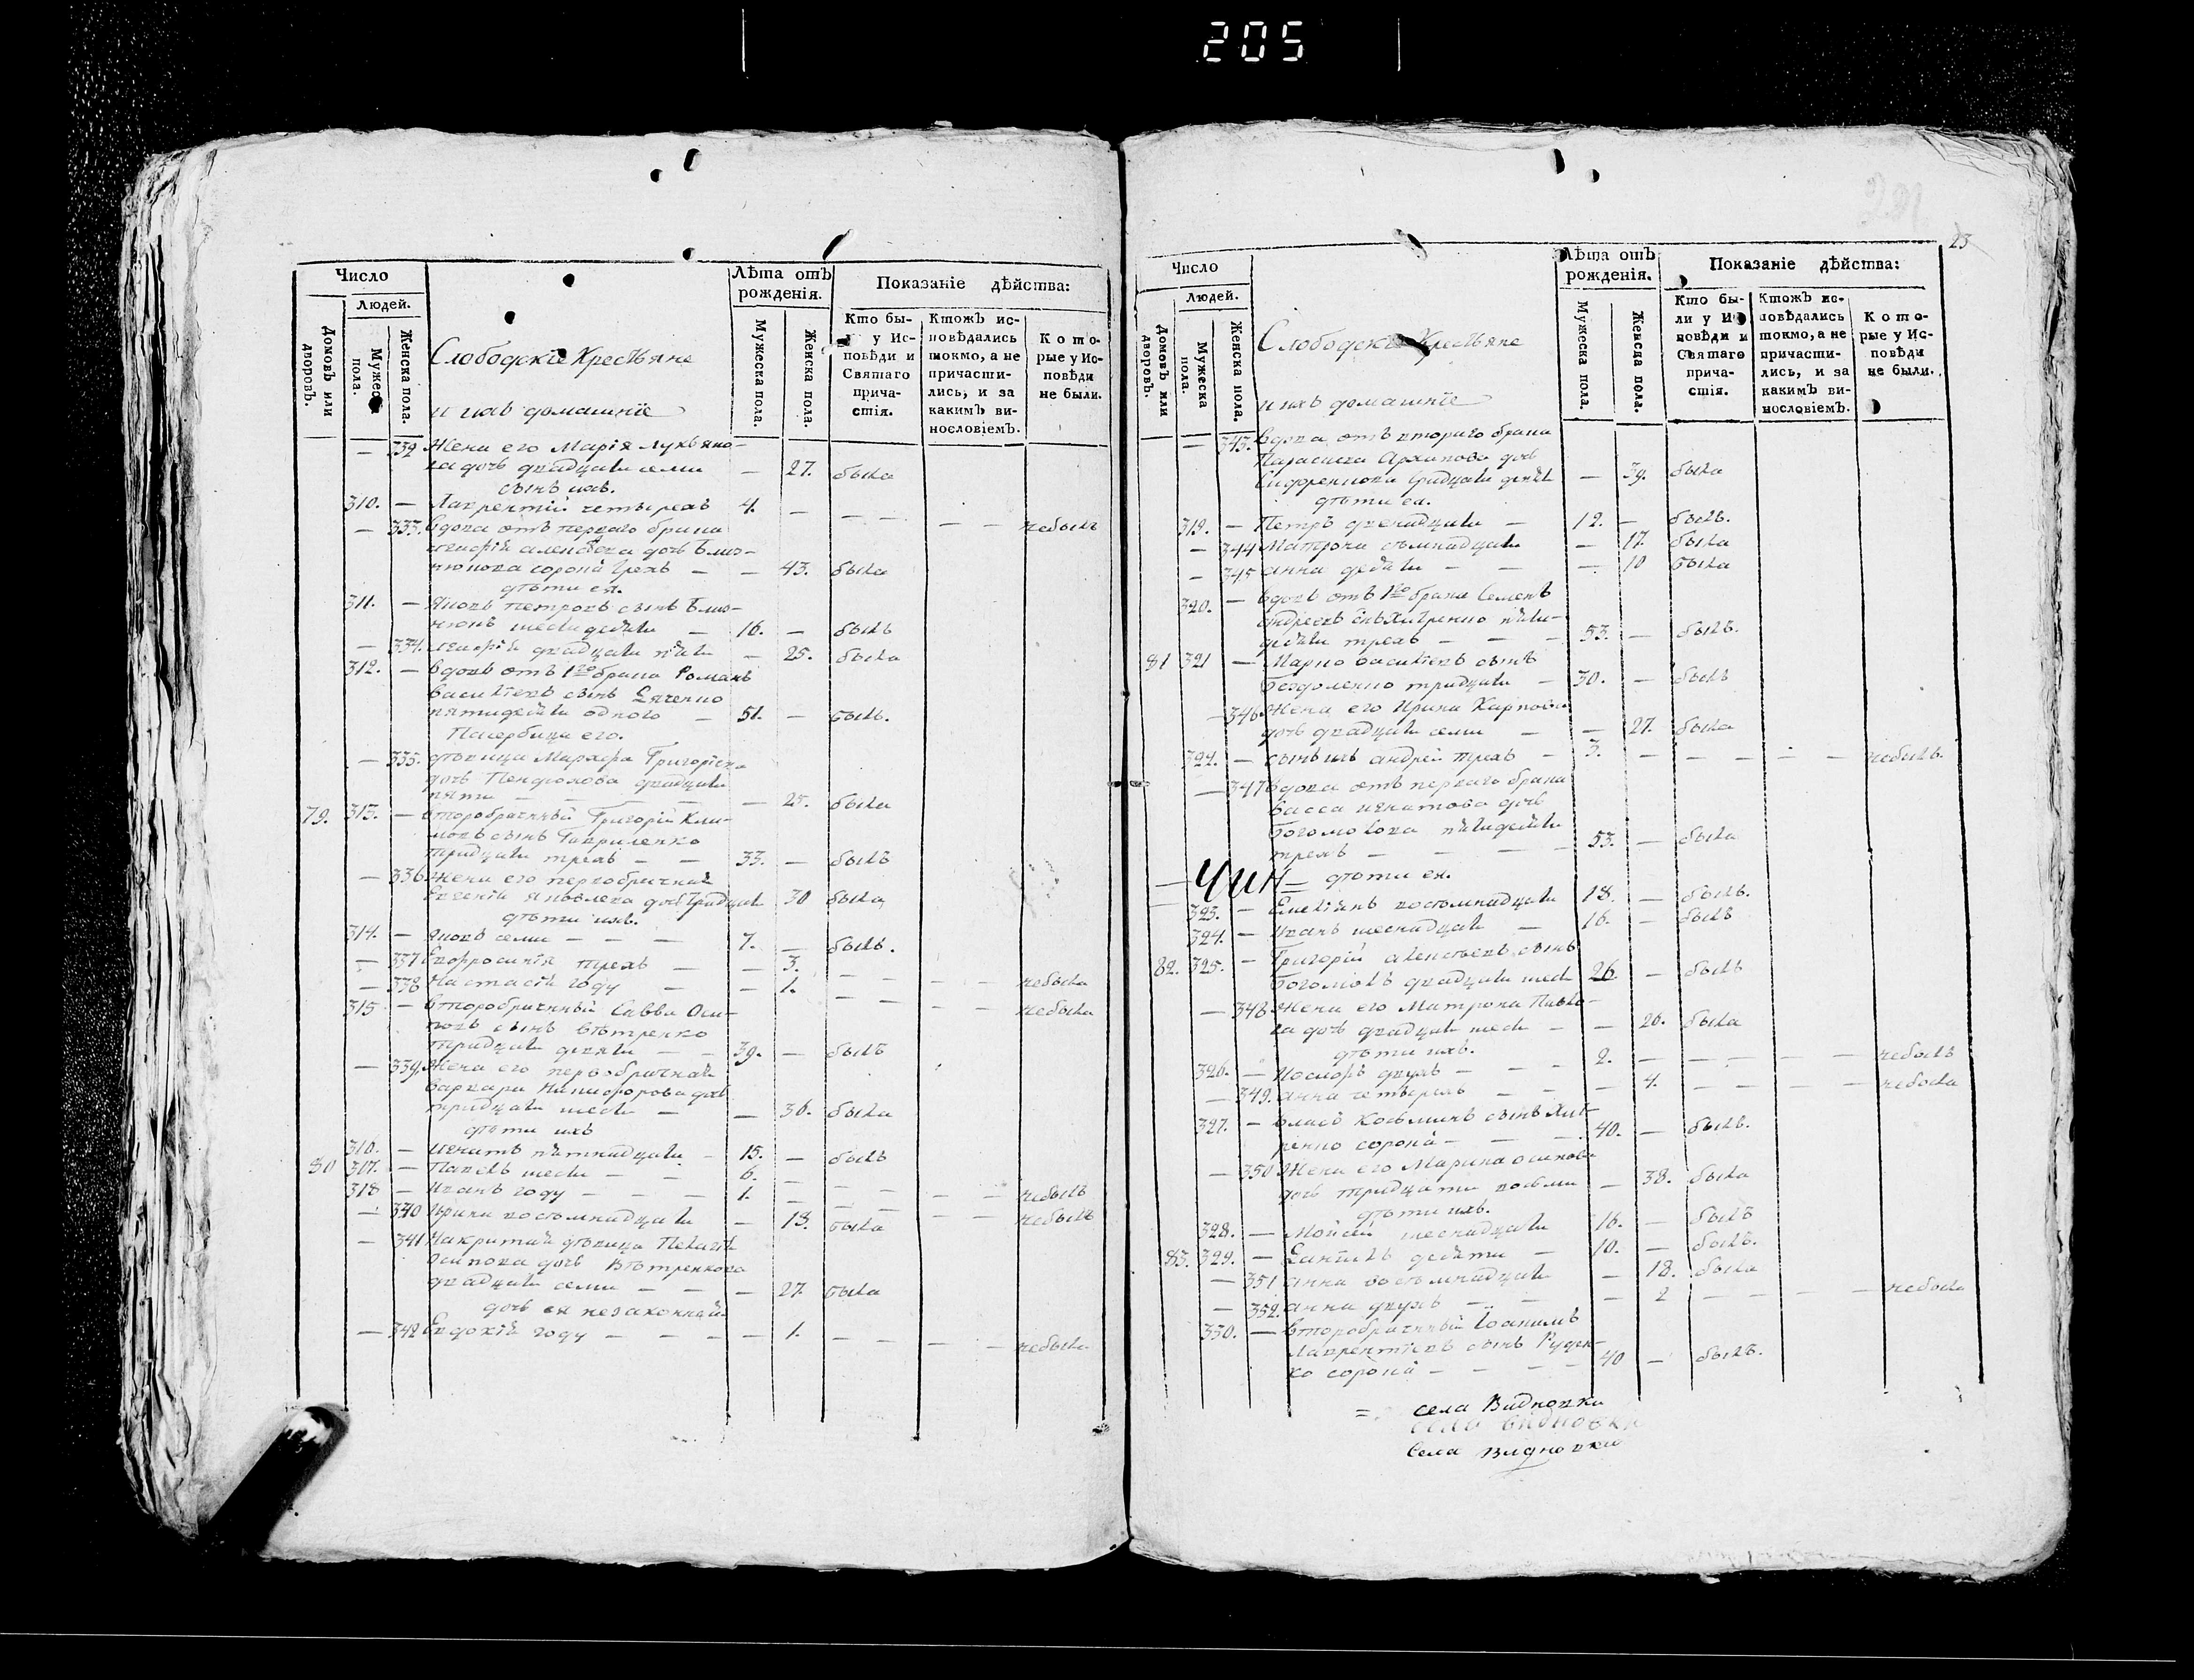 205
Число
Людей.
Домовъ или дворовъ.
Мужеска пола.
Женска пола.
Слободскіе Крестьяне
и ихъ домашніе
Лѣта отъ рожденія.
Мужеска пола.
Женска пола.
Показаніе дѣйства:
Кто бы-
у Ис-
повѣди и
Святаго
прича-
стія.
Ктожъ ис-
повѣдались
токмо, а не
причасти-
лись, и за
какимъ ви-
нословіемъ.
Кото-
рые у Ис-
повѣди
не были.
— 332 Жена его Марія Лукьяно-
ва дочь двадцати семи — 27. была
сынъ ихъ.
310. — Лаврентій четырехъ 4. — — — — — небылъ
— 333. Вдова отъ перваго брака
дочь Близ-
нюкова сорока трехъ — — 43. была
дѣти ея.
311. — Яковъ Петровъ сынъ Близ-
нюкъ шестидесяти — 16. — былъ
— 334. двадцати пяти — 25. была
312. — Вдовъ отъ 1го брака Романъ
Василіевъ сынъ
пятидесяти одного — 51. — былъ.
Пасербица его.
— 335. дѣвица Марѳа Григоріева
дочь двадцати
пяти — — — — 25. была
79. 313. — Второбрачный Григорій Кли-
мовъ сынъ Гавриленко
тридцати трехъ — — 33. — былъ
— 336 Жена его первобрачная
Евгенія Яковлева дочь тридцати 30 была
дѣти ихъ.
314. — Яковъ семи — — — 7. — былъ.
— 337 Евфросинія трехъ — — 3. — — — — небыла
— 338 Настасія году — — 1. — — — — небыла
315 — Второбрачный Савва Оси-
повъ сынъ Вѣтренко
тридцати девяти — — 39. — былъ
— 339. Жена его первобрачная
Варвара Никифорова дочь
тридцати шести — — 36. была
дѣти ихъ
316. — Игнатъ пятнадцати — 15. — былъ
80 317. — Павелъ шести — — 6. — — — — — небылъ
318 — Иванъ году — — — 1. — — — — — небылъ
— 340 Ирина восьмнадцати — 18. была
— 341 Накритая дѣвица Пелагія
Осипова дочь Вѣтренкова
двадцати семи — — — 27. была
дочь ея незаконная
— 342 Евдокія году — — — — 1. — — — — небыла
23
Число
Людей.
Домовъ или дворовъ.
Мужеска пола.
Женска пола.
Слободскіе Крестьяне
и ихъ домашніе
Лѣта отъ рожденія.
Мужеска пола.
Женска пола.
Показаніе дѣйства:
Кто бы-
ли у И
повѣди и
Святаго
прича-
стія.
Ктожъ ис-
повѣдались
токмо, а не
причасти-
лись, и за
какимъ ви-
нословіемъ.
Кото-
рые у Ис-
повѣди
не были.
— 343. Вдова отъ втораго брака
Параскева Архипова дочь
тридцати девяти — 39. была
дѣти ея.
319. — Петръ двенадцати — 12. — былъ.
— 344 Матрона семнадцати — 17. была
— 345 Анна десяти — — — 10 была
320. — Вдовъ отъ 1го брака Семенъ
Андреевъ сынъ пяти-
десяти трехъ — — — 53. — былъ.
81 321 — Марко Василіевъ сынъ
Бездоленко тридцати — 30. — былъ
— 346 Жена его Ирина Карпова
дочь двадцати семи — — 27. была
322. — сынъ ихъ Андрей трехъ — 3. — — — — — небылъ.
— 347 Вдова отъ перваго брака
Васса Игнатова дочь
Богомолова пятидесяти
трехъ — — — — 53. — была
— ЧИН —
дѣти ея.
323. — Емеліянъ восьмнадцати 18. — былъ.
324. — Иванъ шеснадцати — 16. — былъ
82. 325. — Григорій Алексѣевъ сынъ
Богомолъ двадцати шести 26. — былъ
— 348 Жена его Матрона Павло-
ва дочь двадцати шести — — 26. была
дѣти ихъ.
326. — Іосифъ двухъ — — — 2. — — — — — небылъ
— 349. Анна четырехъ — — — 4. — — — — небыла
327. — Власъ Косьминъ сынъ
сорока — — — 40. — былъ.
— 350 Жена его Марина Осипова
дочь тридцати восьми — 38. была
дѣти ихъ.
328. — Мойсей шеснадцати 16. — былъ
83. 329. — Даніилъ десяти — 10. — былъ.
— 351 Анна восьмнадцати — 18. была
— 352. Анна двухъ — — — 2 — — — — небыла
330. — Второбрачный Іоакимъ
Лаврентіевъ сынъ Руден-
ко сорока — — — — 40 — былъ.
= села Видновки
села Видновки
Села Видновки